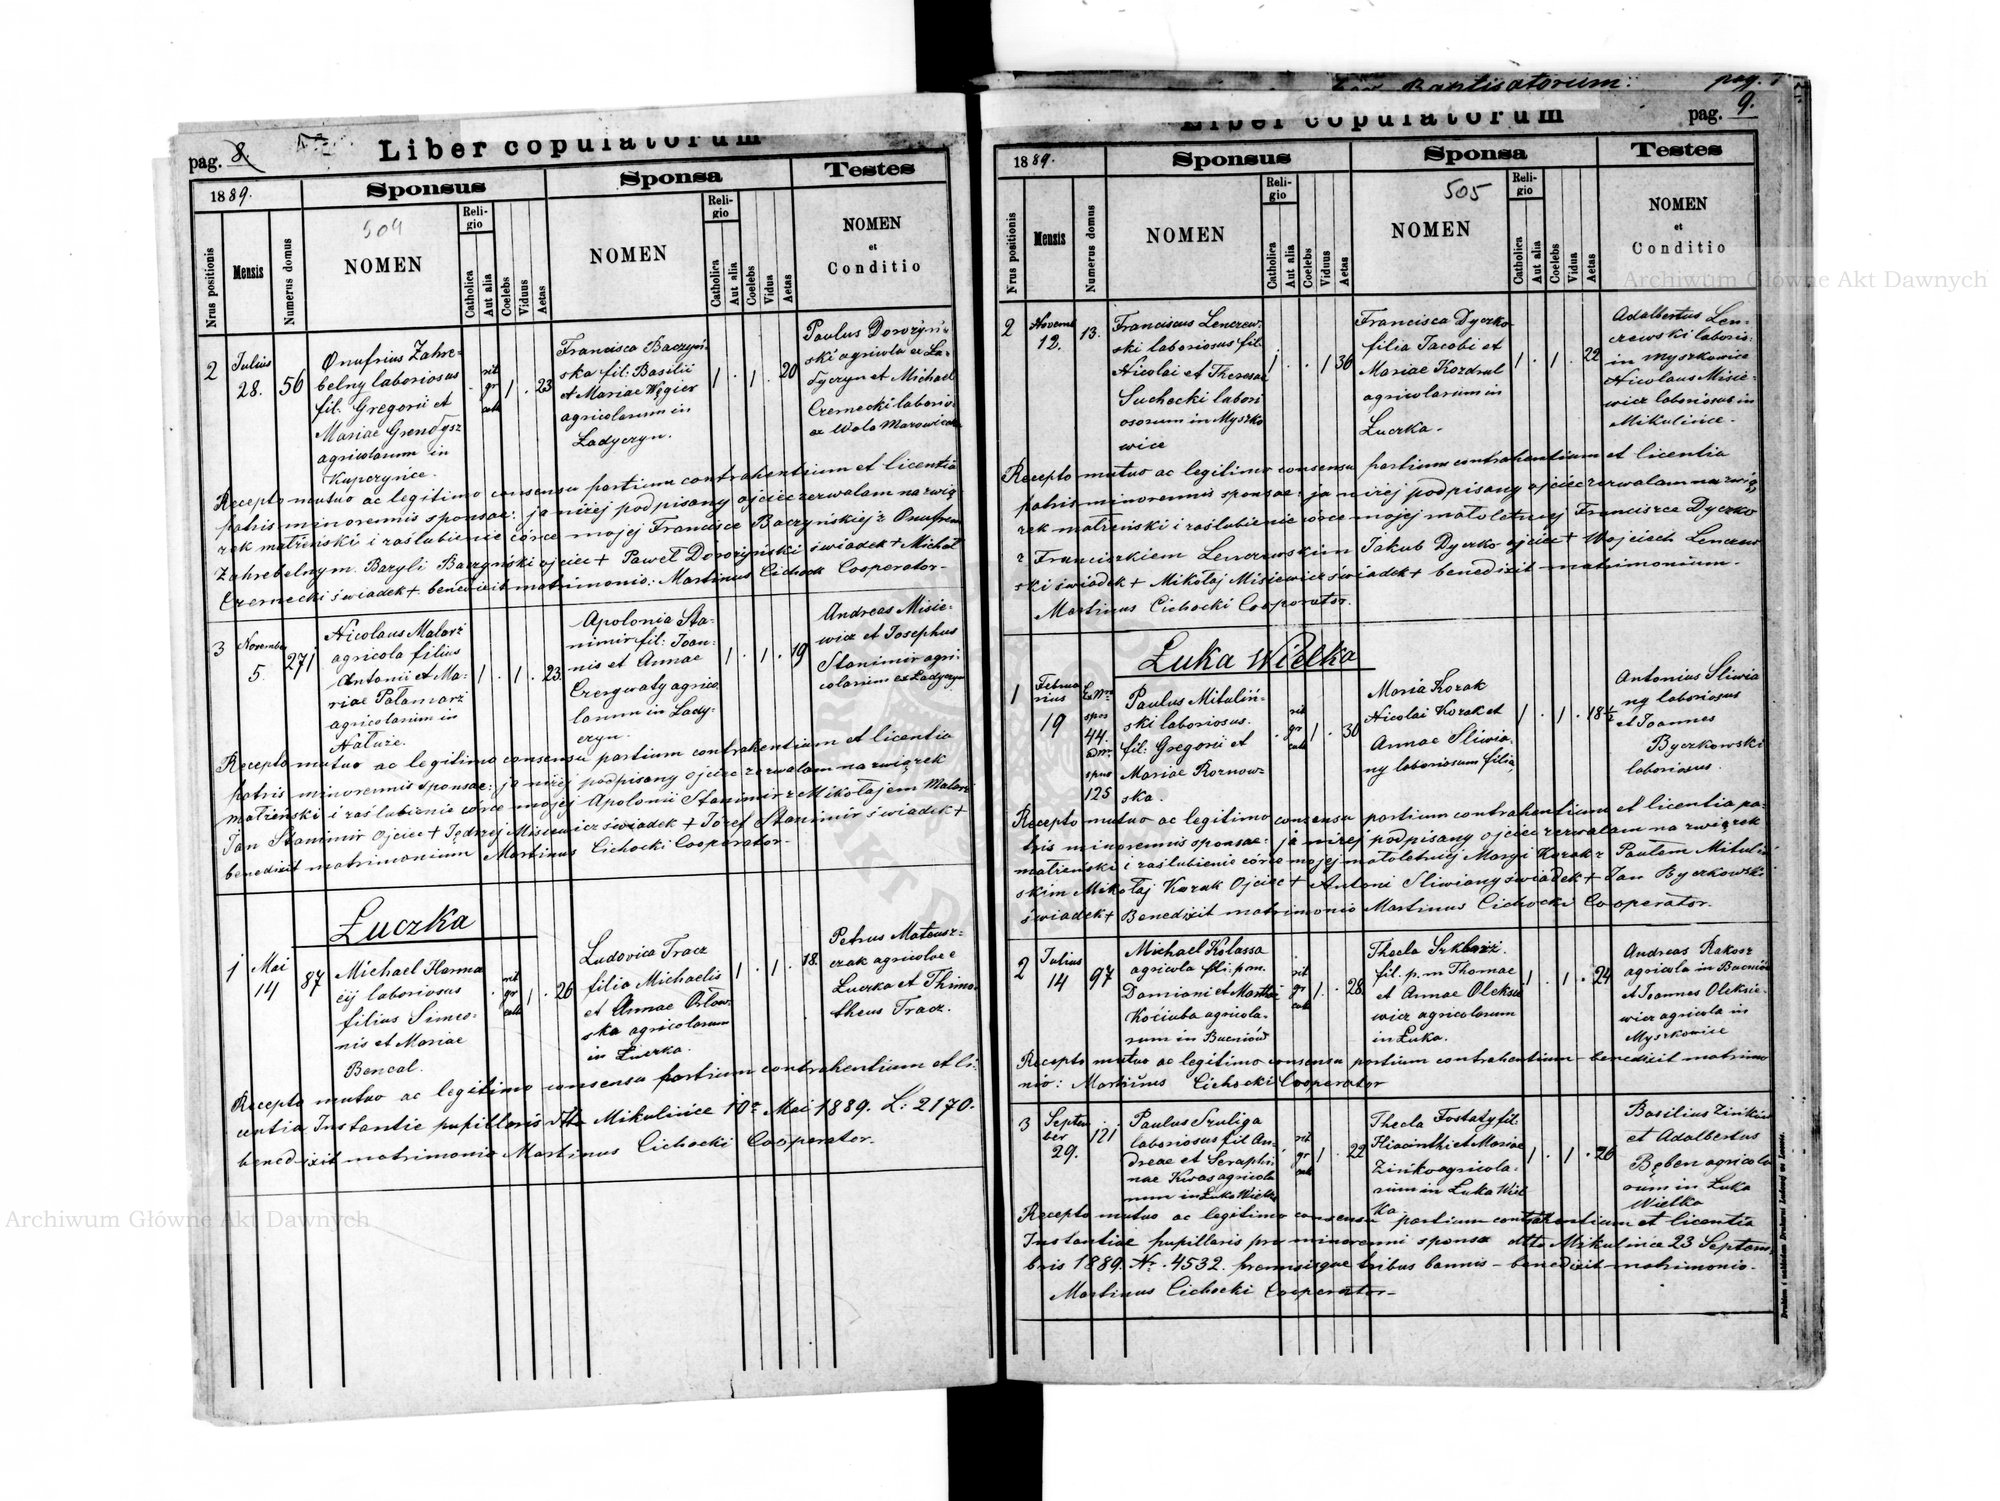 pag. 8.
Liber copulatorum
1889.
Sponsus
Sponsa
Testes
504
Nrus positionis
Mensis
Numerus domus
NOMEN
Religio
Catholica
Aut alia
Coelebs
Viduus
Aetas
NOMEN
Religio
Catholica
Aut alia
Coelebs
Vidua
Aetas
NOMEN
et
Conditio
2
Julius
28.
56
Onufrius Zahre-
belny laboriosus
fil: Gregorii et
Mariae Grendysz
agricolarum in
Kupczyńce.
rit
gr
cath
1 . 23
Francisca Baczyń-
ska fil: Basilii
et Mariae Węgier
agricolarum in
Ładyczyn.
1 . 1 . 20
Paulus Dorożyń-
ski agricola ex Ła-
dyczyn et Michael
Czernecki laborio.
ex Wola Mazowiecka
Recepto mutuo ac legitimo consensu partium contrahentium et licentia
patris minorennis sponsae: ja niżej podpisany ojciec zezwalam na zwią
zek małżeński i zaślubienie córce mojej Francisce Baczyńskiej z Onufrem
Zahrebelnym. Bazyli Baczyński ojciec + Paweł Dorożyński świadek + Michał
Czernecki świadek + benedixit matrimonio: Martinus Cichock Cooperator-
3
November
5.
271
Nicolaus Malarz
agricola filius
Antonii et Ma-
riae Pałamarz
agricolarum in
Nałuże.
1 . 1 . 23.
Apolonia Sta-
nimir fil: Joan-
nis et Annae
Czerwaty agrico.
larum in Łady-
czyn.
1 . 1 . 19
Andreas Misie-
wicz et Josephus
Stanimir agri-
colarum ex Ładyczyn
Recepto mutuo ac legitimo consensu partium contrahentium et licentia
patris minorennis sponsae: ja niżej podpisany ojciec zezwalam na związek
małżeński i zaślubienie córce mojej Apolonii Stanimir z Mikołajem Malarz
Jan Stanimir Ojciec + Jędrzej Misiewicz świadek + Józef Stanimir świadek +
benedixit matrimonium Martinus Cichocki Cooperator-
Łuczka
1
Mai
14
87
Michael Harma
cij laboriosus
filius Simeo-
nis et Mariae
Bencal.
rit
gr
cath
1 . 26
Ludovica Tracz
filia Michaelis
et Annae Orłow-
ska agricolarum
in Łuczka.
1 . 1 . 18.
Petrus Mateusz-
czak agricolae e
Łuczka et Thimo-
theus Tracz.
Recepto mutuo ac legitimo consensu partium contrahentium et li-
centia Instantie pupillaris dtto Mikulińce 10a Mai 1889. L: 2170.
benedixit matrimonio Martinus Cichocki Cooperator-
Baptisatorum: pag.
pag. 9.
Liber copulatorum
1889.
Sponsus
Sponsa
Testes
505
Nrus positionis
Mensis
Numerus domus
NOMEN
Religio
Catholica
Aut alia
Coelebs
Viduus
Aetas
NOMEN
Religio
Catholica
Aut alia
Coelebs
Vidua
Aetas
NOMEN
et
Conditio
2
Novem
12.
13.
Franciscus Lenczew-
ski laboriosus fil.
Nicolai et Theresae
Suchocki labori
osorum in Myszko
wice
1 . . 1 36
Francisca Dyczko
filia Jacobi et
Mariae Kozdrul
agricolarum in
Łuczka.
1 . 1 . 22
Adalbertus Len-
czewski laborio.
in Myszkowice
Nicolaus Misie-
wicz laboriosus in
Mikulińce.
Recepto mutuo ac legitimo consensu partium contrahentium et licentia
patris minorennis sponsae: ja niżej podpisany ojciec zezwalam na zwią
zek małżeński i zaślubienie córce mojej małoletniej Franciszce Dyczko
z Franciszkiem Lenczewskim Jakub Dyczko ojciec + Wojciech Lenczew
ski świadek + Mikołaj Misiewicz świadek + benedixit matrimonium.
Martinus Cichocki Cooperator.
Łuka Wielka
1
Februa
rius
19
spos
44.
spus
125
Paulus Mituliń-
ski laboriosus.
fil: Gregorii et
Mariae Roznow-
ska.
rit
gr
cath
1 . 30
Maria Kozak
Nicolai Kozak et
Annae Sliwia
ny laboriosum filia,
1 . 1 . 18½
Antonius Sliwia
ny laboriosus
et Joannes
Byczkowski
laboriosus.
Recepto mutuo ac legitimo consensu partium contrahentium et licentia pa-
tris minorennis sponsae: ja niżej podpisany ojciec zezwalam na związek
małżeński i zaślubienie córce mojej małoletniej Maryi Kozak z Pawłem Mituliń
skim Mikołaj Kozak Ojciec + Antoni Sliwiany świadek + Jan Byczkowski
świadek + Benedixit matrimonio Martinus Cichocki Cooperator.
2
Julius
14
97
Michael Kolassa
agricola fil: p.m.
Damiani et Marthae
Kociuba agricola-
rum in Bucniów
rit
gr
cath
1 . 28.
Thecla Szklarz.
fil. p. m Thomae
et Annae Oleksie
wicz agricolarum
in Łuka.
1 . 1 . 24
Andreas Rakosz
agricola in Bucniów
et Joannes Oleksie-
wicz agricola in
Myszkowice
Recepto mutuo ac legitimo consensu partium contrahentium - benedixit matrimo
nio: Martinus Cichocki Cooperator
3
Septem
ber
29.
121
Paulus Szuliga
laboriosus fil An-
dreae et Seraphi-
nae Kwas agricola
rum in Łuka Wielka
rit
gr
cath
1 . 22
Thecla Fostaty fil:
Hiacinthi et Mariae
Zinko agricola-
rum in Łuka Wiel
ka
1 . 1 . 26
Basilius Zinków
et Adalbertus
Bęben agricola
rum in Łuka
Wielka
Recepto mutuo ac legitimo consensu partium contrahentium et licentia
Instantiae pupillaris pro minorenni sponsa dtto Mikulińce 23 Septem-
bris 1889. Nr. 4532. premissisque tribus bannis - benedixit matrimonio.
Martinus Cichocki Cooperator-
Archiwum Główne Akt Dawnych
Archiwum Główne Akt Dawnych